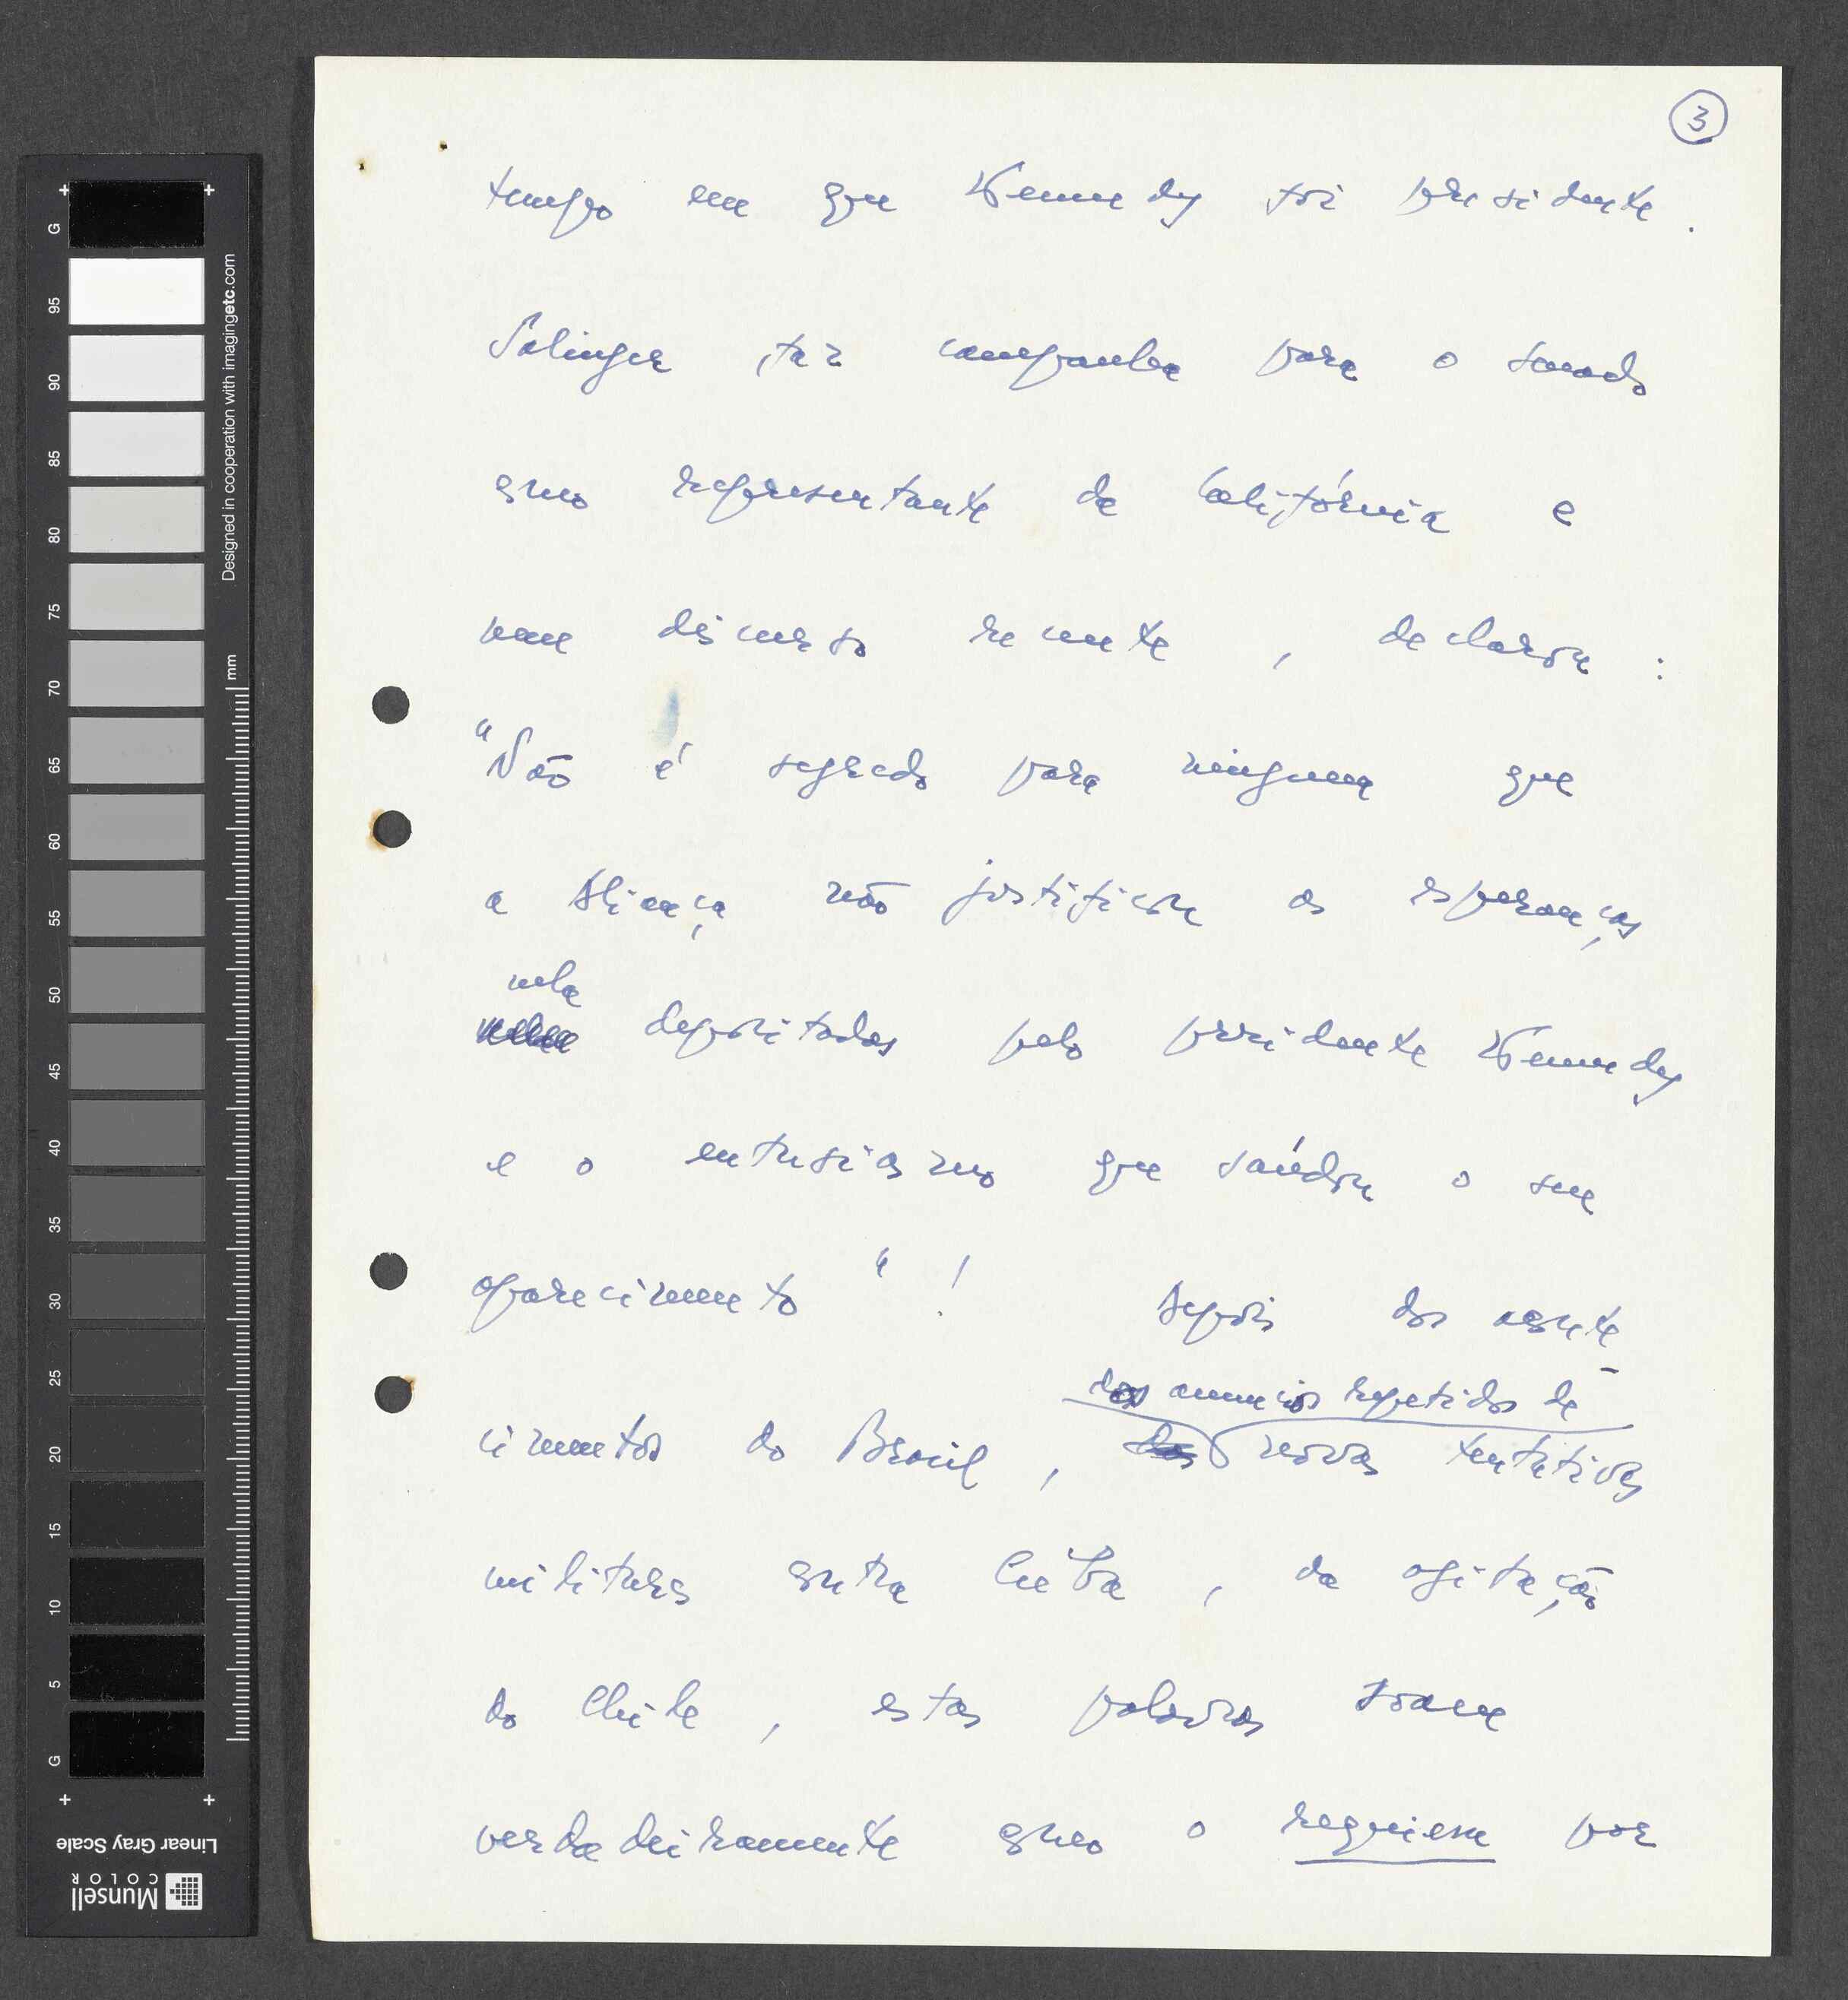 3
tempo em que Kennedy foi presidente.
Salinger faz campanha para o senado
como representante da Califórnia e
num discurso recente, declarou:
"Não é segredo para ninguem que
a Aliança não justificou as esperanças
nela
depositadas pelo presidente Kennedy
e o entusiasmo que saúdou o seu
aparecimento"! Depois dos aconte-
dos anuncios repetidos de
cimentos do Brasil, novas tentativas
militares contra Cuba, da agitação
do Chile, estas palavras soam
verdadeiramente como o requiem por
G
95
90
85
80
75
70
65
60
55
50
45
40
35
30
25
20
15
10
5
G
Designed in cooperation with imagingetc.com
mm
Linear Gray Scale
Munsell
COLOR